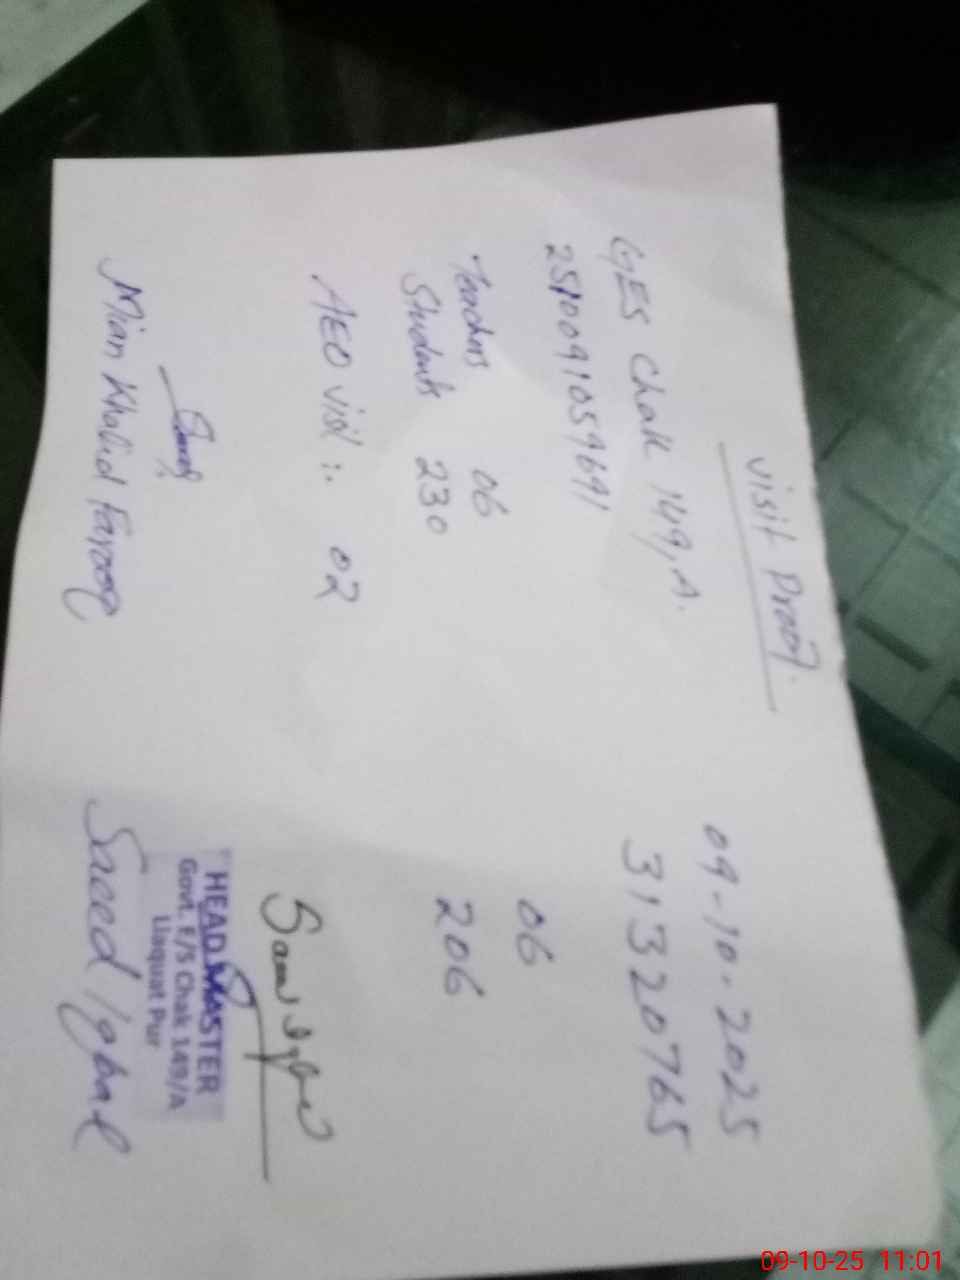 visit Proof.
09-10-2025
GES Chak 149, A.
31320765
2510091059641
Teachers 06 06
Students 230 206
AEO visit :. 02
Saeed Iqbal
HEAD MASTER
Govt. E/S Chak 149/A
Liaquat Pur
Mian Khalid Farooq
Saeed Iqbal
09-10-25 11:01